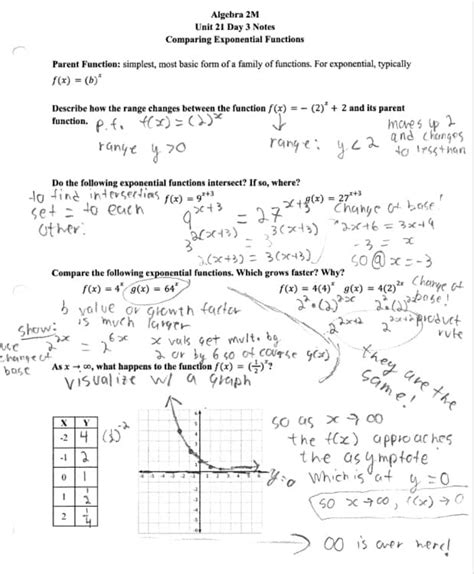 Algebra 2M
Unit 21 Day 3 Notes
Comparing Exponential Functions
Parent Function: simplest, most basic form of a family of functions. For exponential, typically
f(x) = (b)^x
Describe how the range changes between the function f(x) = − (2)^x + 2 and its parent
function. p.f. f(x) = (2)^x
range y>0
range: y<2
moves up 2
and changes
to less than
Do the following exponential functions intersect? If so, where?
to find intersections f(x) = 9^(x+3) g(x) = 27^(x+3)
set = to each
other:
9^(x+3) = 27^(x+3)
change of base!
3^2(x+3) = 3^3(x+3)
2(x+3) = 3(x+3)
2x+6 = 3x+9
-3 = x
so @ x=-3
Compare the following exponential functions. Which grows faster? Why?
f(x) = 4^x g(x) = 64^x
f(x) = 4(4)^x g(x) = 4(2)^2x
change of
base!
b value or growth factor
is much larger
2^2•(2)^2x
2^2•(2)^2x
show:
use
change of
base
2^2x = 2^6x
x vals get mult. by
2 or by 6 so of course g(x)
2^(2x+2)
2^(2x+2)
product
rule
they are the
same!
As x → ∞, what happens to the function f(x) = (1/2)^x?
visualize w/ a graph
X Y
-2 4 (1/2)^-2
-1 2
0 1
1 1/2
2 1/4
y=0
so as x → ∞
the f(x) approaches
the asymptote
which is at y=0
so x→∞, f(x) → 0
∞ is over here!